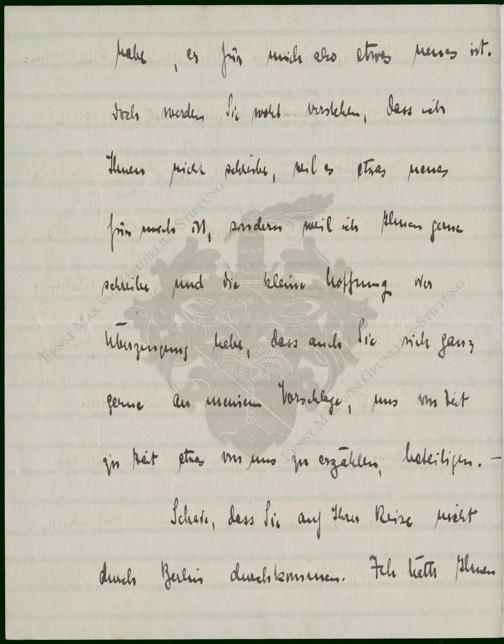 habe, es für mich also etwas neues ist.
Doch werden Sie wohl verstehen, dass ich
Ihnen nicht schreibe, weil es etwas neues
für mich ist, sondern weil ich Ihnen gerne
schreibe und die kleine Hoffnung oder
Überzeugung habe, dass auch Sie sich ganz
gerne an meinem Vorschlage, uns von Zeit
zu Zeit etwas von uns zu erzählen, beteiligen. –
Schade, dass Sie auf Ihrer Reise nicht
durch Berlin durchkommen. Ich hätte Ihnen
ERNST MAX VON GRUNELIUS-STIFTUNG
ERNST MAX VON GRUNELIUS-STIFTUNG